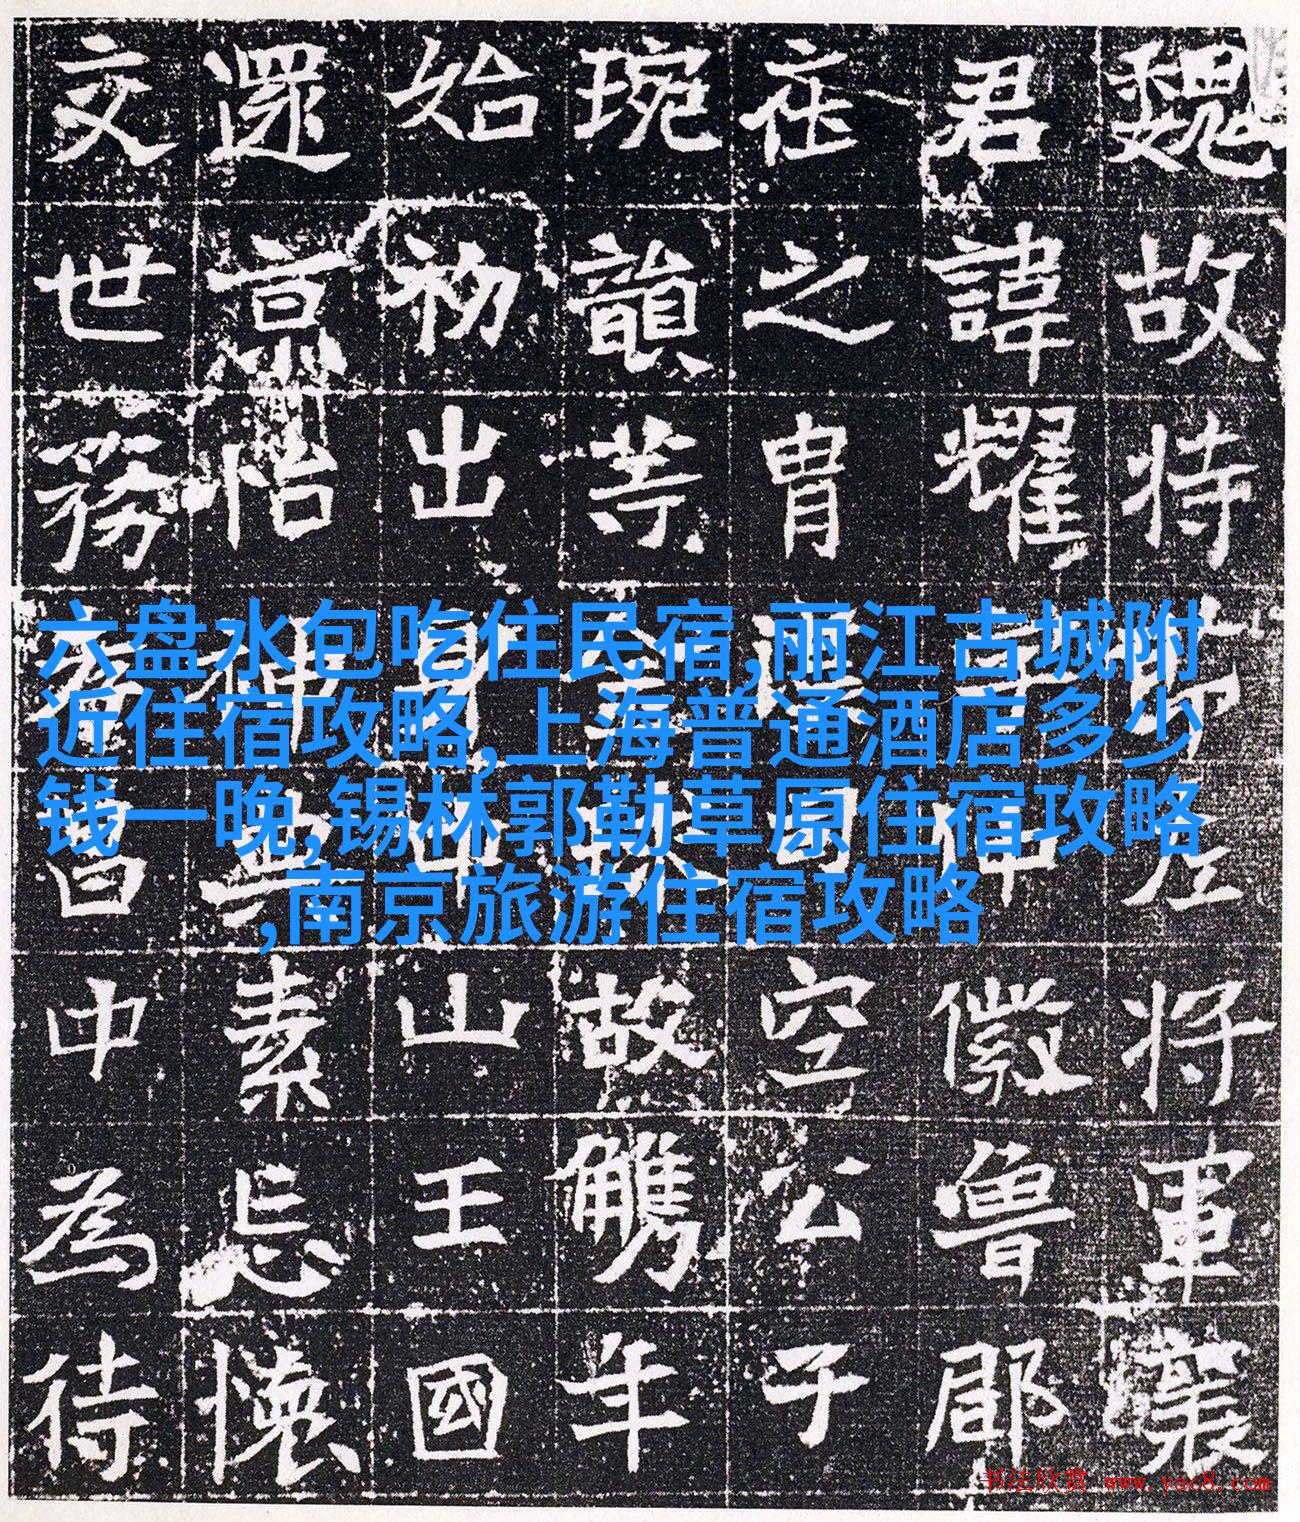 六盘水包吃住民宿,丽江古城附
近住宿攻略,上海普通酒店多少
钱一晚,锡林郭勒草原住宿攻略
,南京旅游住宿攻略
魏故持左將軍襄
君諱耀字仲徽魯郡
在之胄司空公子
琬韻等故年
始初出身中山王國
還京怡神典素忘懷
交世務昔中為待
书法欣赏 www.yac8.com